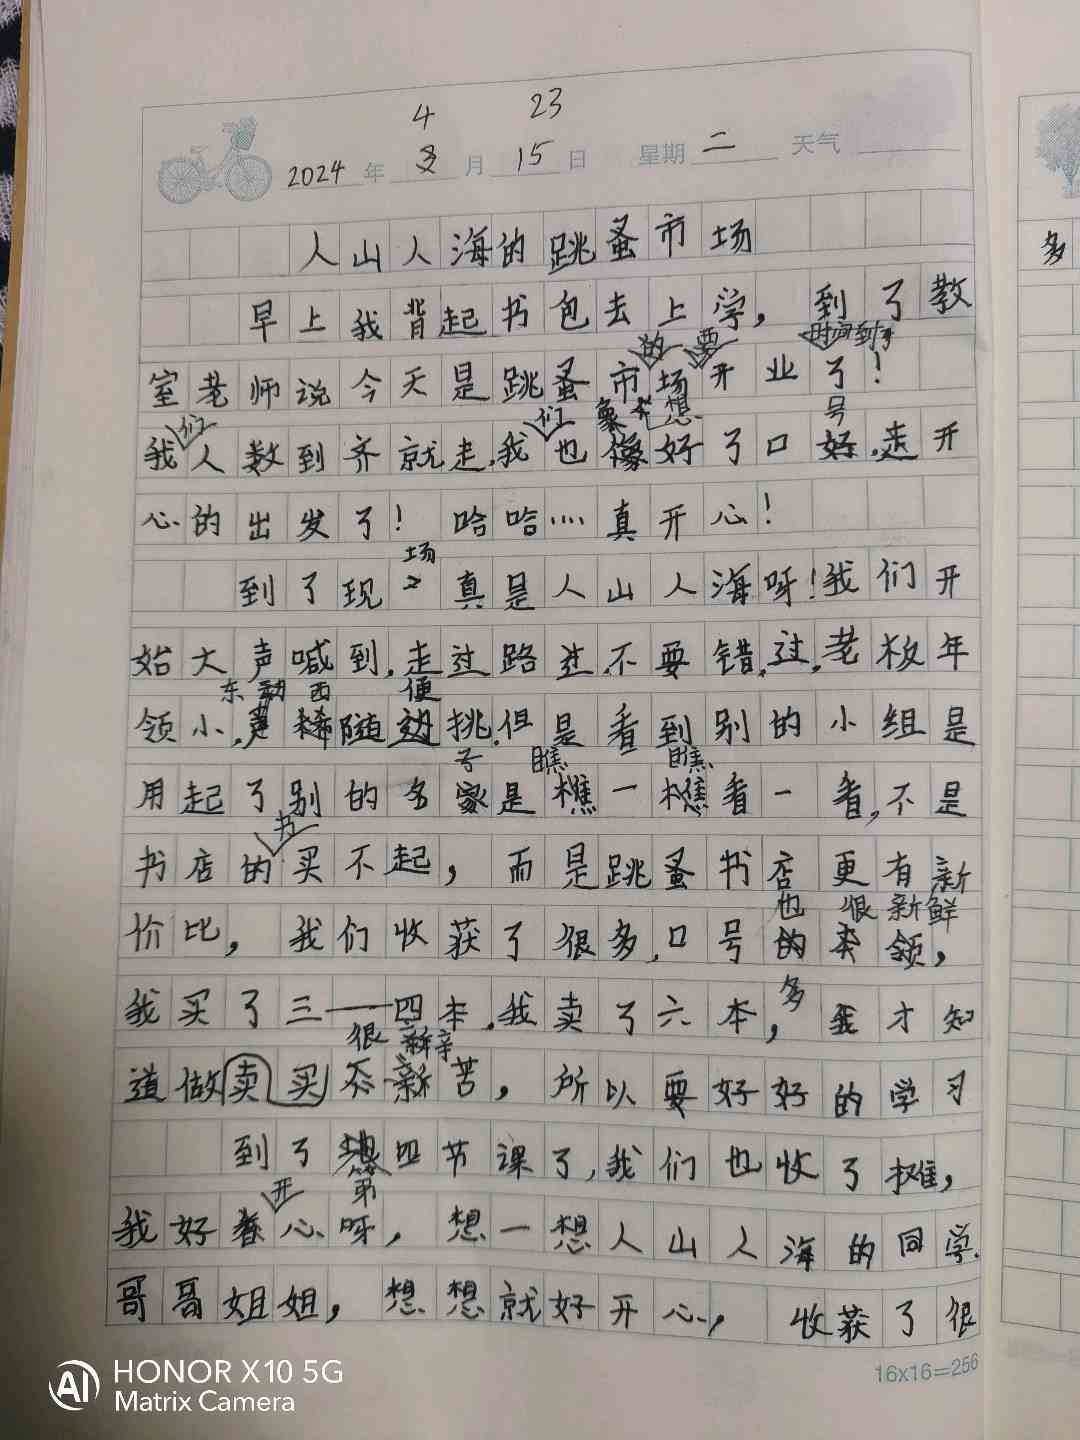 4 23
2024年 月15日 星期二 天气
人山人海的跳蚤市场
早上我背起书包去上学，到了教
的 要 时间到了
室老师说今天是跳蚤市场开业了！
们 们 想 号
我人数到齐就走，我也像好了口好，走开
心的出发了！哈哈……真开心！
场
到了现 真是人山人海呀！我们开
始大声喊到，走过路过，不要错，过，老板年
东 西 便
领小， 随边挑，但是看到别的小组是
子 瞧 瞧
用起了别的名家是樵一樵看一看，不是
书
书店的买不起，而是跳蚤书店更有新
也 很 新鲜
价比，我们收获了很多，口号的卖领，
我买了三——四本，我卖了六本，我才知
多
很 辛
道做卖买不新苦，所以要好好的学习
到了 四节课了，我们也收了摊，
开 第
我好 心呀，想一想人山人海的同学、
哥哥姐姐，想想就好开心，收获了很
16x16=256
多
HONOR X10 5G
Matrix Camera